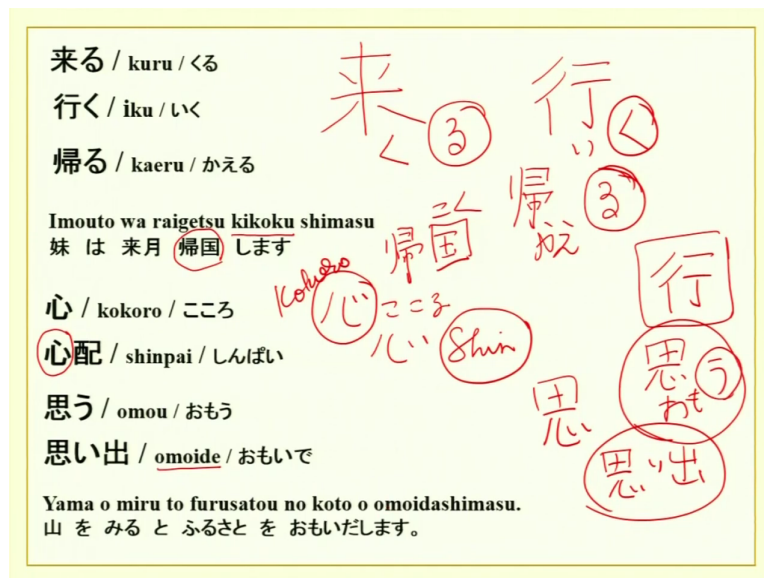 来る / kuru / くる
行く / iku / いく
帰る / kaeru / かえる
Imouto wa raigetsu kikoku shimasu
妹 は 来月 帰国 します
心 / kokoro / こころ
心配 / shinpai / しんぱい
思う / omou / おもう
思い出 / omoide / おもいで
Yama o miru to furusatou no koto o omoidashimasu.
山 を みる と ふるさと を おもいだします。
来 る
く
行 く
い
帰 る
かえ
こく
帰国
Kokoro
心 こころ
心 Shin
行
思 う
おも
思
思い出